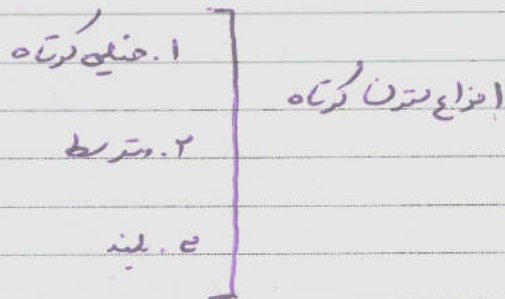 انواع ستون کوتاه
۱. خیلی کوتاه
۲. متوسط
۳. بلند